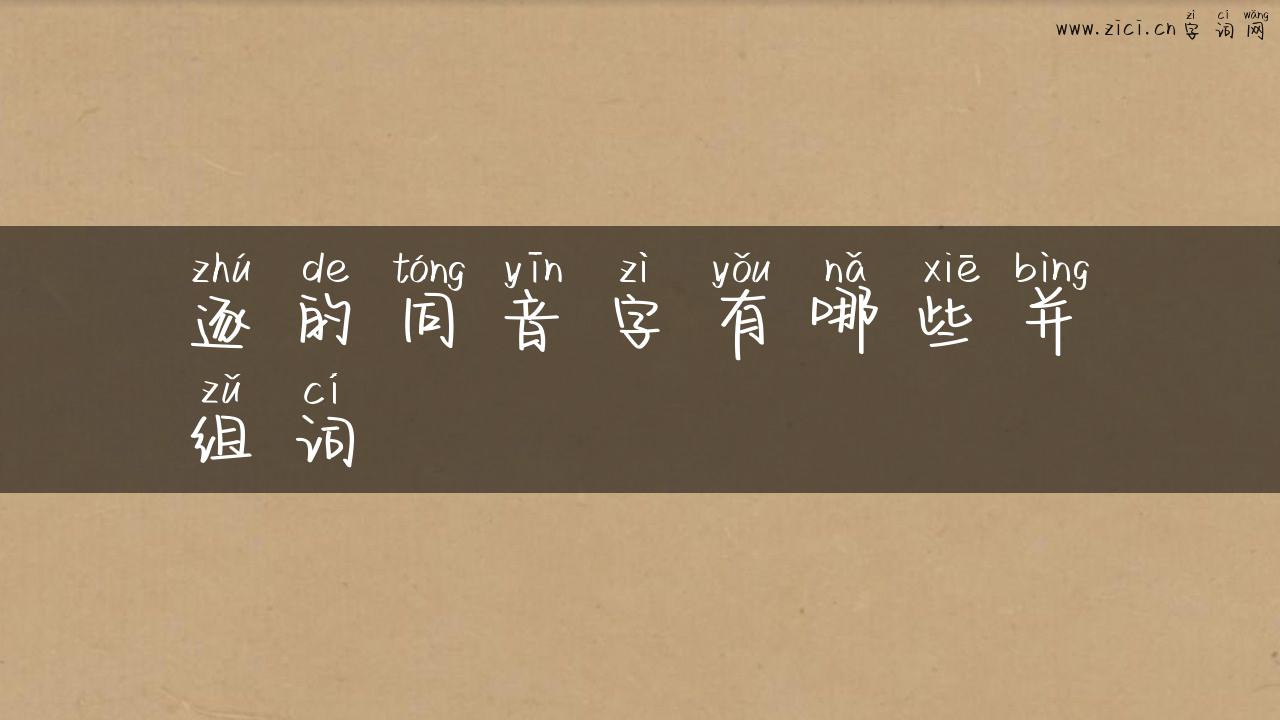 zì cí wǎng
www.zici.cn 字词网
zhú de tóng yīn zì yǒu nǎ xiē bìng
逐的同音字有哪些并
zǔ cí
组词